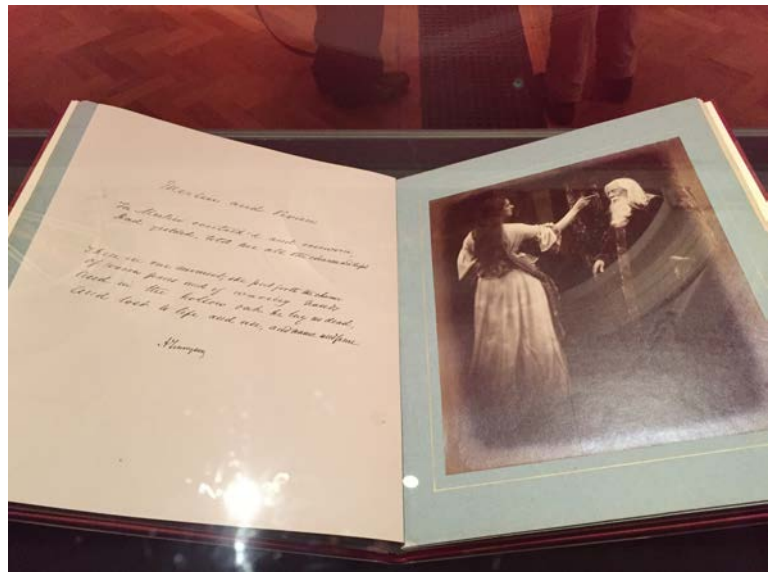 Merlin and Vivien
For Merlin overtalk'd and overworn
Had yielded, told her all the charm & slept
Then in one moment, she put forth the charm
Of woven paces and of waving hands
And in the hollow oak he lay as dead,
And lost to life and use, and name and fame
A Tennyson